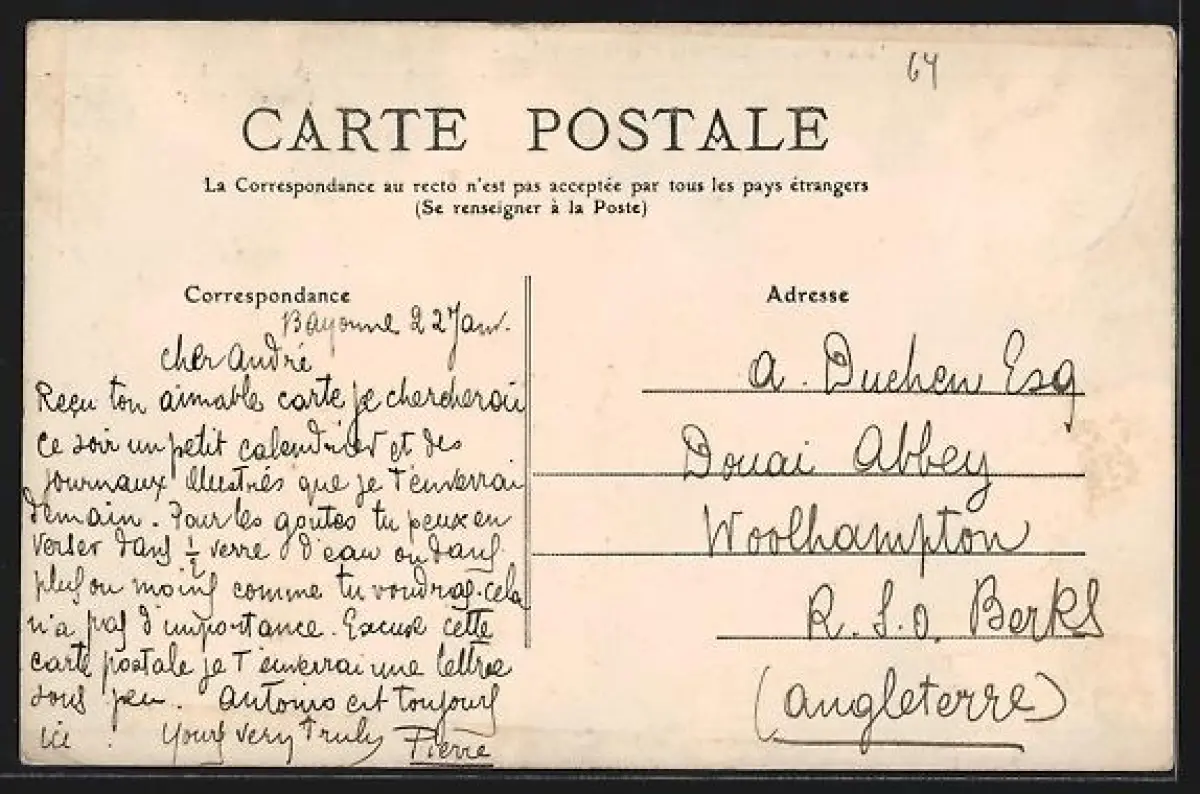 64
CARTE POSTALE
La Correspondance au recto n'est pas acceptée par tous les pays étrangers
(Se renseigner à la Poste)
Correspondance
Bayonne 22 Janv.
cher André
Reçu ton aimable carte je chercherai
ce soir un petit calendrier et des
journaux illustrés que je t'enverrai
demain. Pour les goutes tu peux en
verser dans ½ verre d'eau ou dans
plus ou moins comme tu voudras. cela
n'a pas d'importance. Excuse cette
carte postale je t'enverrai une lettre
sous peu. Antonio est toujours
ici. Yours very truly Pierre
Adresse
A. Duchen Esq
Douai Abbey
Woolhampton
R.S.O. Berks
(Angleterre)